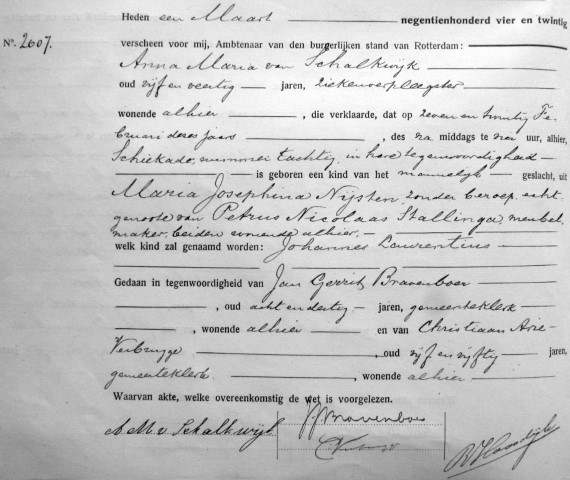 Heden een Maart negentienhonderd vier en twintig
Nº. 2007. verscheen voor mij, Ambtenaar van den burgerlijken stand van Rotterdam:
Anna Maria van Schalkwijk
oud vijf en veertig jaren, ziekenverpleegster
wonende alhier, die verklaarde, dat op zeven en twintig Fe-
bruari dezes jaars, des na middags te uur, alhier,
Schiekade, nummer tachtig, in hare tegenwoordigheid
is geboren een kind van het mannelijk geslacht, uit
Maria Josephina Nijsten, zonder beroep, echt-
genoote van Petrus Nicolaas Stallinga, meubel-
maker, beiden wonende alhier.
welk kind zal genaamd worden: Johannes Laurentius
Gedaan in tegenwoordigheid van Jan Gerrit Bravenboer
, oud acht en dertig jaren, gemeenteklerk
, wonende alhier en van Christiaan Arie
Verbrugge, oud vijf en vijftig jaren,
gemeenteklerk, wonende alhier
Waarvan akte, welke overeenkomstig de wet is voorgelezen.
A M v Schalkwijk JG Bravenboer